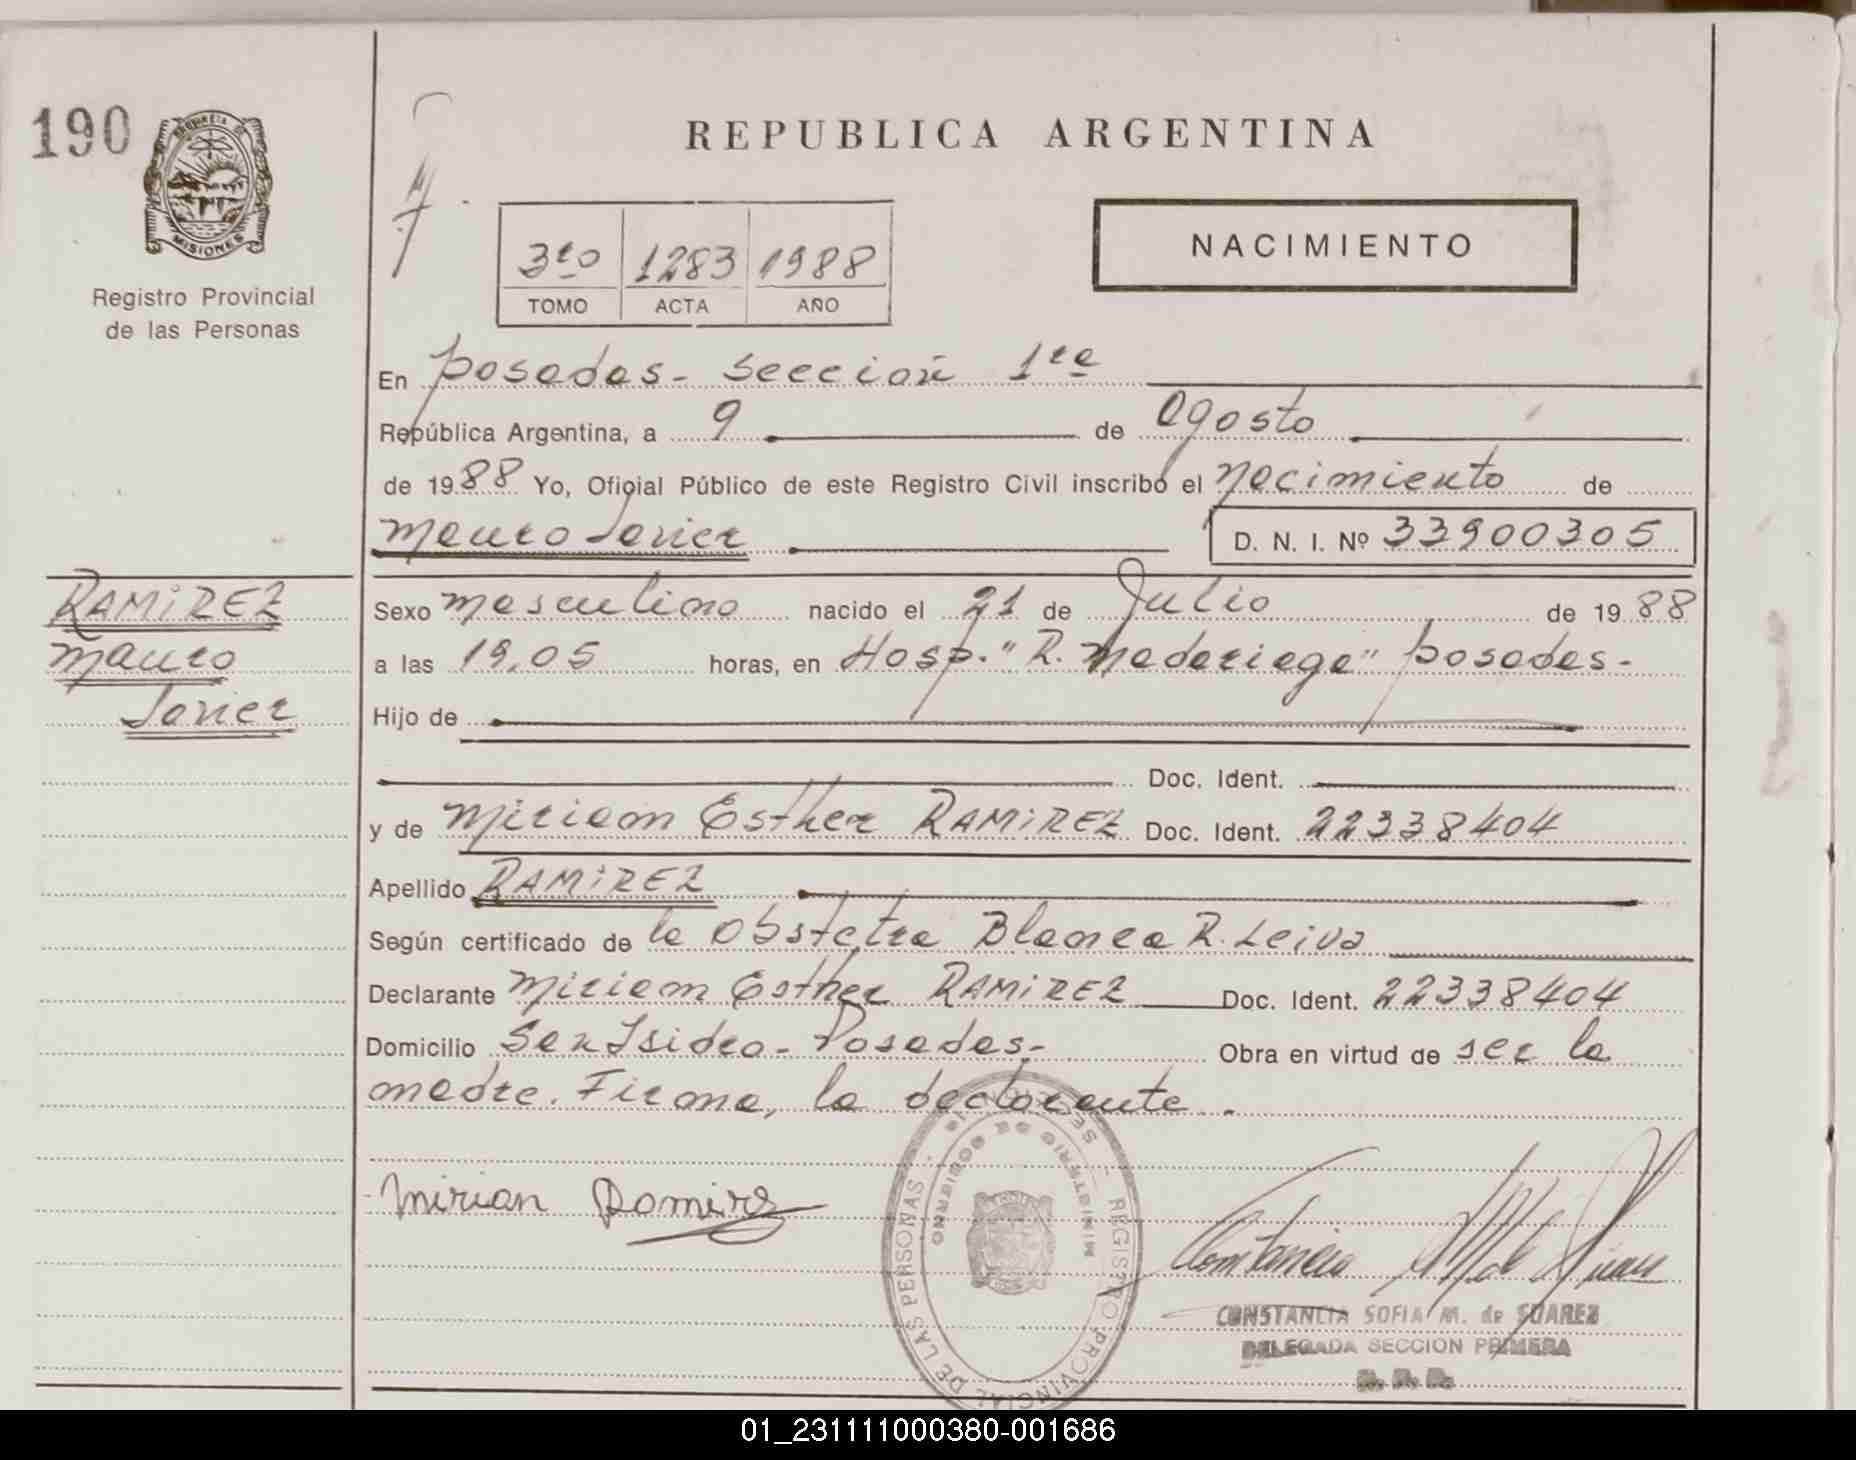 190
PROVINCIA DE
MISIONES
Registro Provincial
de las Personas
REPUBLICA ARGENTINA
NACIMIENTO
3ro 1283 1988
TOMO ACTA AÑO
En Posadas - Sección 1ra
República Argentina, a 9 de Agosto
de 1988 Yo, Oficial Público de este Registro Civil inscribo el nacimiento de
Mauro Javier D. N. I. Nº 33900305
RAMIREZ
Mauro
Javier
Sexo masculino nacido el 21 de Julio de 1988
a las 19,05 horas, en Hosp. "R. Madariaga" Posadas -
Hijo de
Doc. Ident.
y de Miriam Esther RAMIREZ Doc. Ident. 22338404
Apellido RAMIREZ
Según certificado de la Obstetra Blanca R. Leiva
Declarante Miriam Esther RAMIREZ Doc. Ident. 22338404
Domicilio San Isidro - Posadas - Obra en virtud de ser la
madre. Firma, la declarante.
Mirian Ramirez
REGISTRO PROVINCIAL DE LAS PERSONAS
MINISTERIO DE GOBIERNO
CONSTANCIA SOFIA M. de SUAREZ
DELEGADA SECCION PRIMERA
R. P. P.
01_231111000380-001686